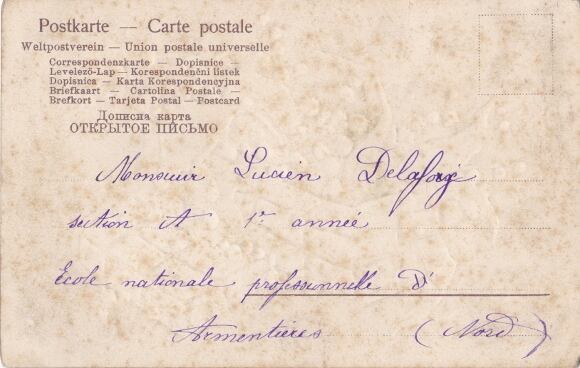 Postkarte — Carte postale
Weltpostverein — Union postale universelle
Correspondenzkarte — Dopisnice —
Levelező-Lap — Korespondenční lístek
Dopisnica — Karta Korespondencyjna
Briefkaart — Cartolina Postale —
Brefkort — Tarjeta Postal — Postcard
Дописна карта
ОТКРЫТОЕ ПИСЬМО
Monsieur Lucien Delaforge
section A 1re année
École nationale professionnelle d'
Armentières (Nord)